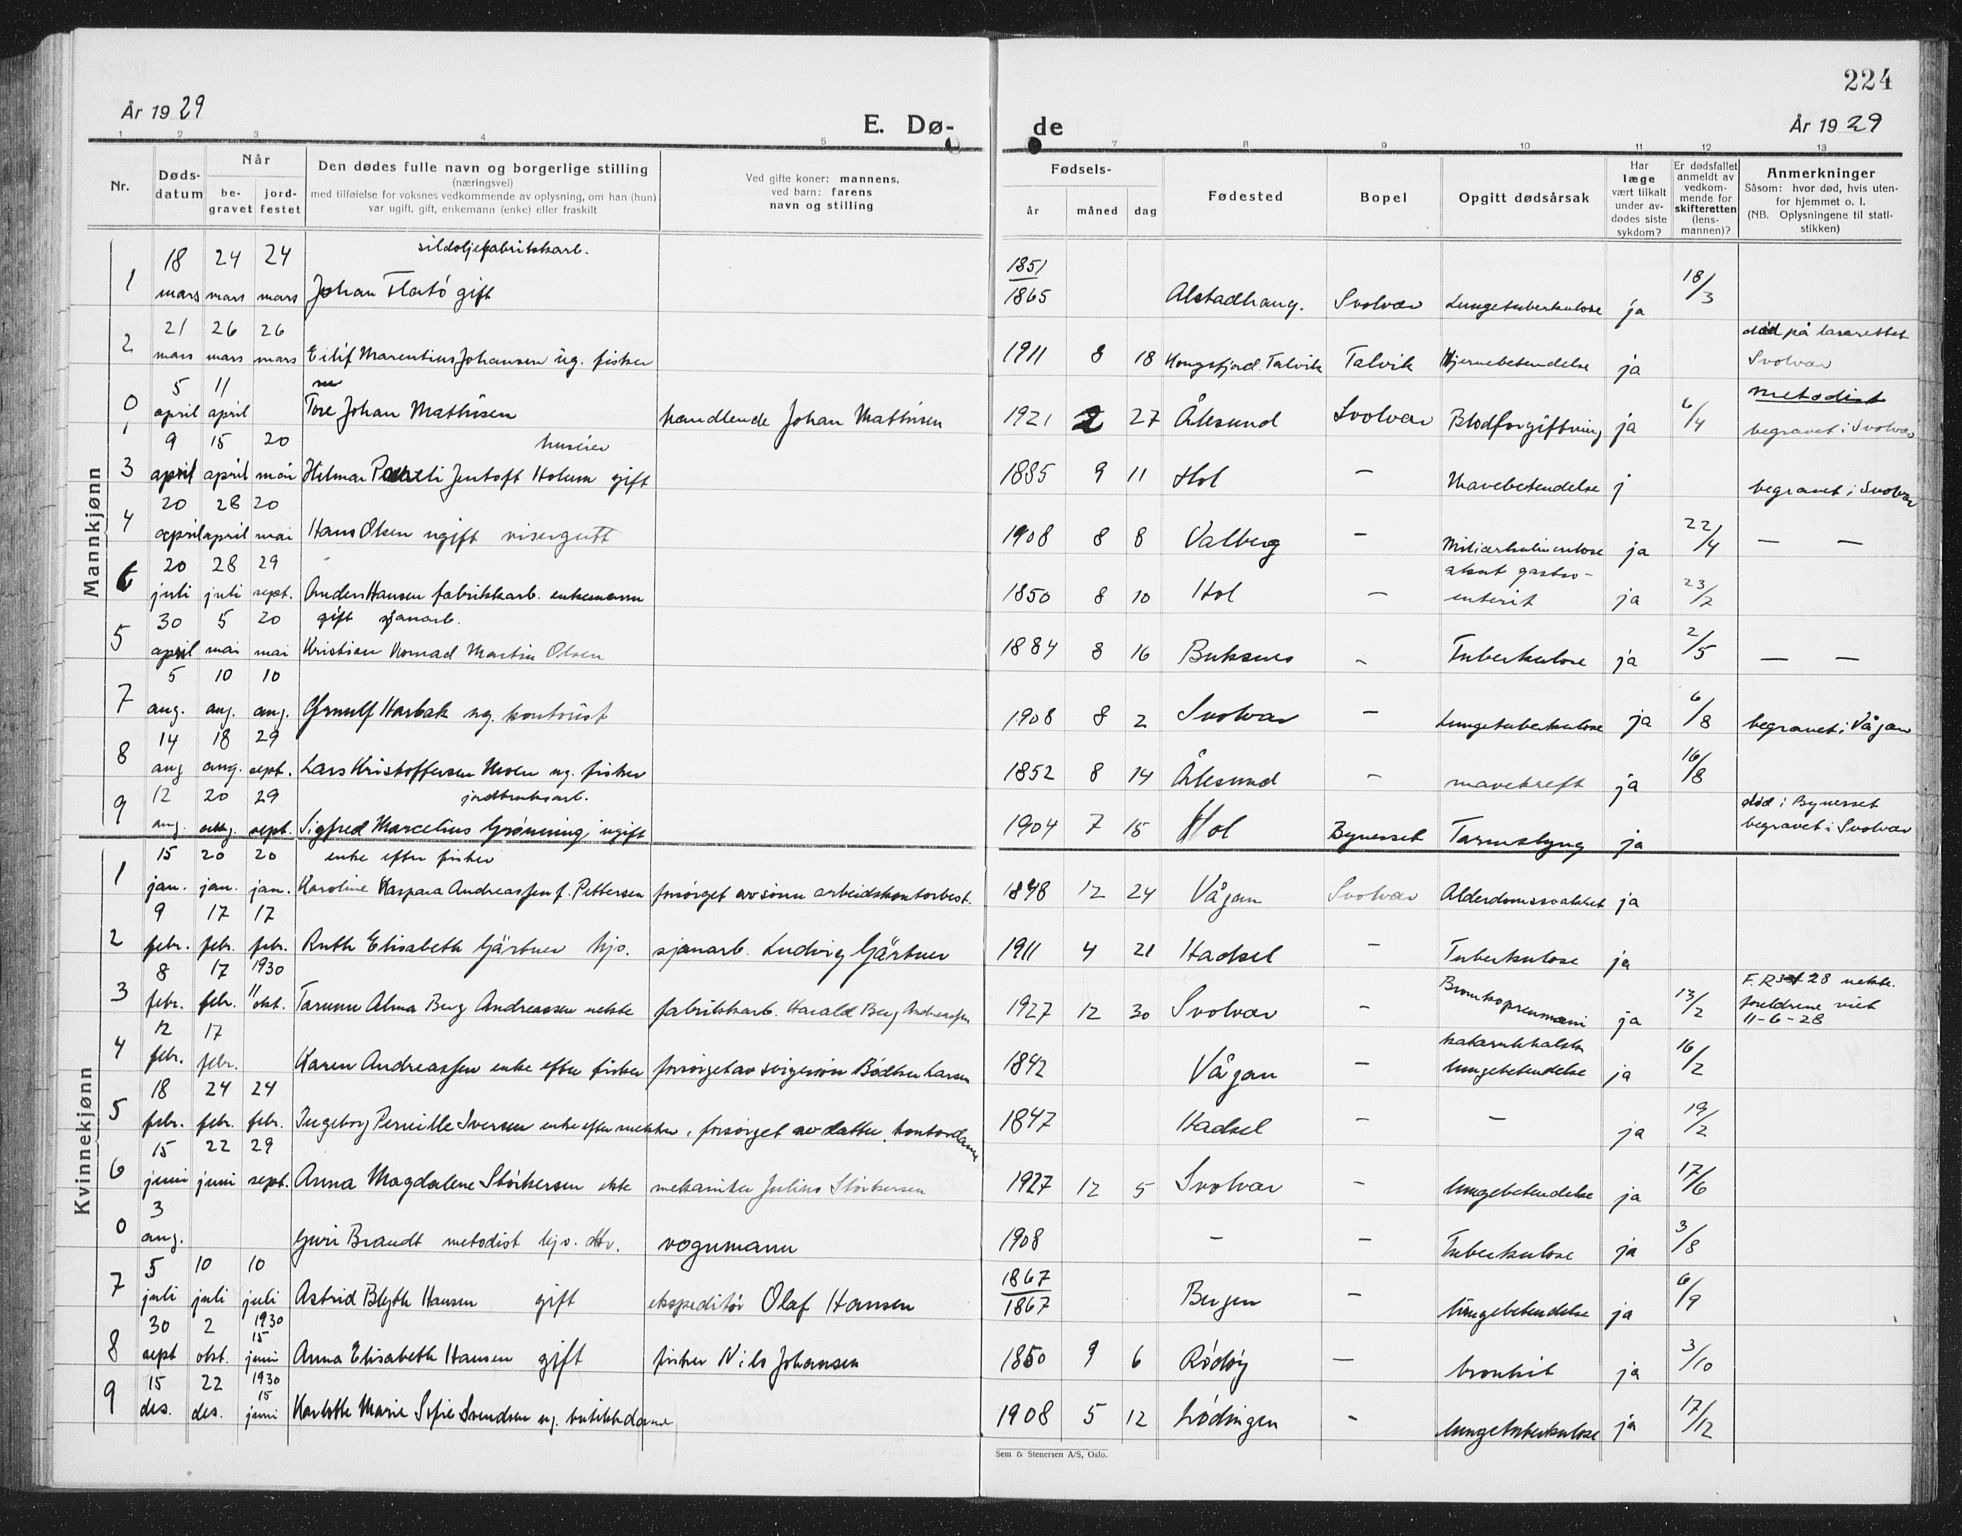 224
År 1929
E. Dø-
de
År 1929
1 2 3 4 5 7 8 9 10 11 12 13
Nr.
Dødsdatum
Når
begravet
jordfestet
Den dødes fulle navn og borgerlige stilling
(næringsvei)
med tilføielse for voksnes vedkommende av oplysning, om han (hun)
var ugift, gift, enkemann (enke) eller fraskilt
Ved gifte koner: mannens,
ved barn: farens
navn og stilling
Fødsels-
år måned dag
Fødested
Bopel
Opgitt dødsårsak
Har læge vært tilkalt under avdødes siste sykdom?
Er dødsfallet anmeldt av vedkommende for skifteretten (lensmannen)?
Anmerkninger
Såsom: hvor død, hvis utenfor hjemmet o. l.
(NB. Oplysningene til statistikken)
Mannkjønn
sildoljefabrikkarb.
1 18 mars 24 mars 24 mars Johan Flatø gift 1851 1865 Alstadhaug. Svolvær Lungetuberkulose ja 18/3
2 21 mars 26 mars 26 mars Eilif Marentius Johansen ug. fisker 1911 8 18 Kongsfjord. Talvik Talvik Hjernebetendelse ja død på lasarettet Svolvær
0 5 april 11 april Tore Johan Mathisen handlende Johan Mathisen 1921 2 27 Ålesund Svolvær Blodforgiftning ja 6/4 metodist begravet i Svolvær
3 9 april 15 april 20 mai Hilmar Jentoft Holum gift huseier 1885 9 11 Hol – Mavebetendelse j begravet i Svolvær
4 20 april 28 april 20 mai Hans Olsen ugift visergutt 1908 8 8 Valberg – ja 22/4 — —
6 20 juli 28 juli 29 sept. Anders Hansen fabrikkarb. enkemann 1850 8 10 Hol – akut gastro-enterit ja 23/7
5 30 april 5 mai 20 mai gift sjauarb. Kristian Konrad Martin Olsen 1884 8 16 Buksnes – Tuberkulose ja 2/5 — —
7 5 aug. 10 aug. 10 aug. Harbak ug. kontorist 1908 8 2 Svolvær – Lungetuberkulose ja 6/8 begravet i Vågan
8 14 aug 18 aug. 29 sept. Lars Kristoffersen ug. fisker 1852 8 14 Ålesund – mavekreft ja 16/8
9 12 aug. 20 aug. 29 sept. jordbruksarb. Sigfred Marcelius Grønning, ugift 1904 7 15 Hol Bynesset Tarmslyng ja død i Bynesset begravet i Svolvær
Kvinnekjønn
1 15 jan. 20 jan. 20 jan. enke efter fisker Karoline Kaspara Andreassen f. Pettersen forsørget av sønn arbeidskontorbest. 1848 12 24 Vågan Svolvær Alderdomssvakhet ja
2 9 febr. 17 febr. 17 febr. Ruth Elisabeth Gärtner hjv. sjauarb. Ludvig Gärtner 1911 4 21 Hadsel – Tuberkulose ja
3 8 febr. 17 febr. 1930 11 okt. Torunn Alma Berg Andreassen uekte fabrikkarb. Harald Berg Andreassen 1927 12 30 Svolvær – Bronkopneumoni ja 13/2 F. R 28 uekte. foreldrene viet 11-6-28
4 12 febr. 17 febr. Karen Andreassen enke efter fisker forsørget av svigersøn Bødtker Larsen 1842 Vågan – katarrhalsk lungebetendelse ja 16/2
5 18 febr. 24 febr. 24 febr. Ingeborg Pernille Iversen enke efter snekker, forsørget av datter, kontordame 1847 Hadsel – – ja 19/2
6 15 juni 22 juni 29 sept. Anna Magdalene Størkersen ekte mekaniker Julius Størkersen 1927 12 5 Svolvær – lungebetendelse ja 17/6
0 3 aug. Guri Brandt metodist hjv. vognmann 1908 – – Tuberkulose ja 3/8
7 5 juli 10 juli 10 juli Astrid Blyth Hansen gift ekspeditør Olaf Hansen 1867 1867 Bergen – lungebetendelse ja 6/9
8 30 sept 2 okt. 1930 15 juni Anna Elisabeth Hansen gift fisker Nils Johansen 1850 9 6 Rødøy – bronkit ja 3/10
9 15 des. 22 des. 1930 15 juni Karlotte Marie Sofie Svendsen ug. butikkdame 1908 5 12 Lødingen – lungetuberkulose ja 17/12
Sem & Stenersen A/S, Oslo.